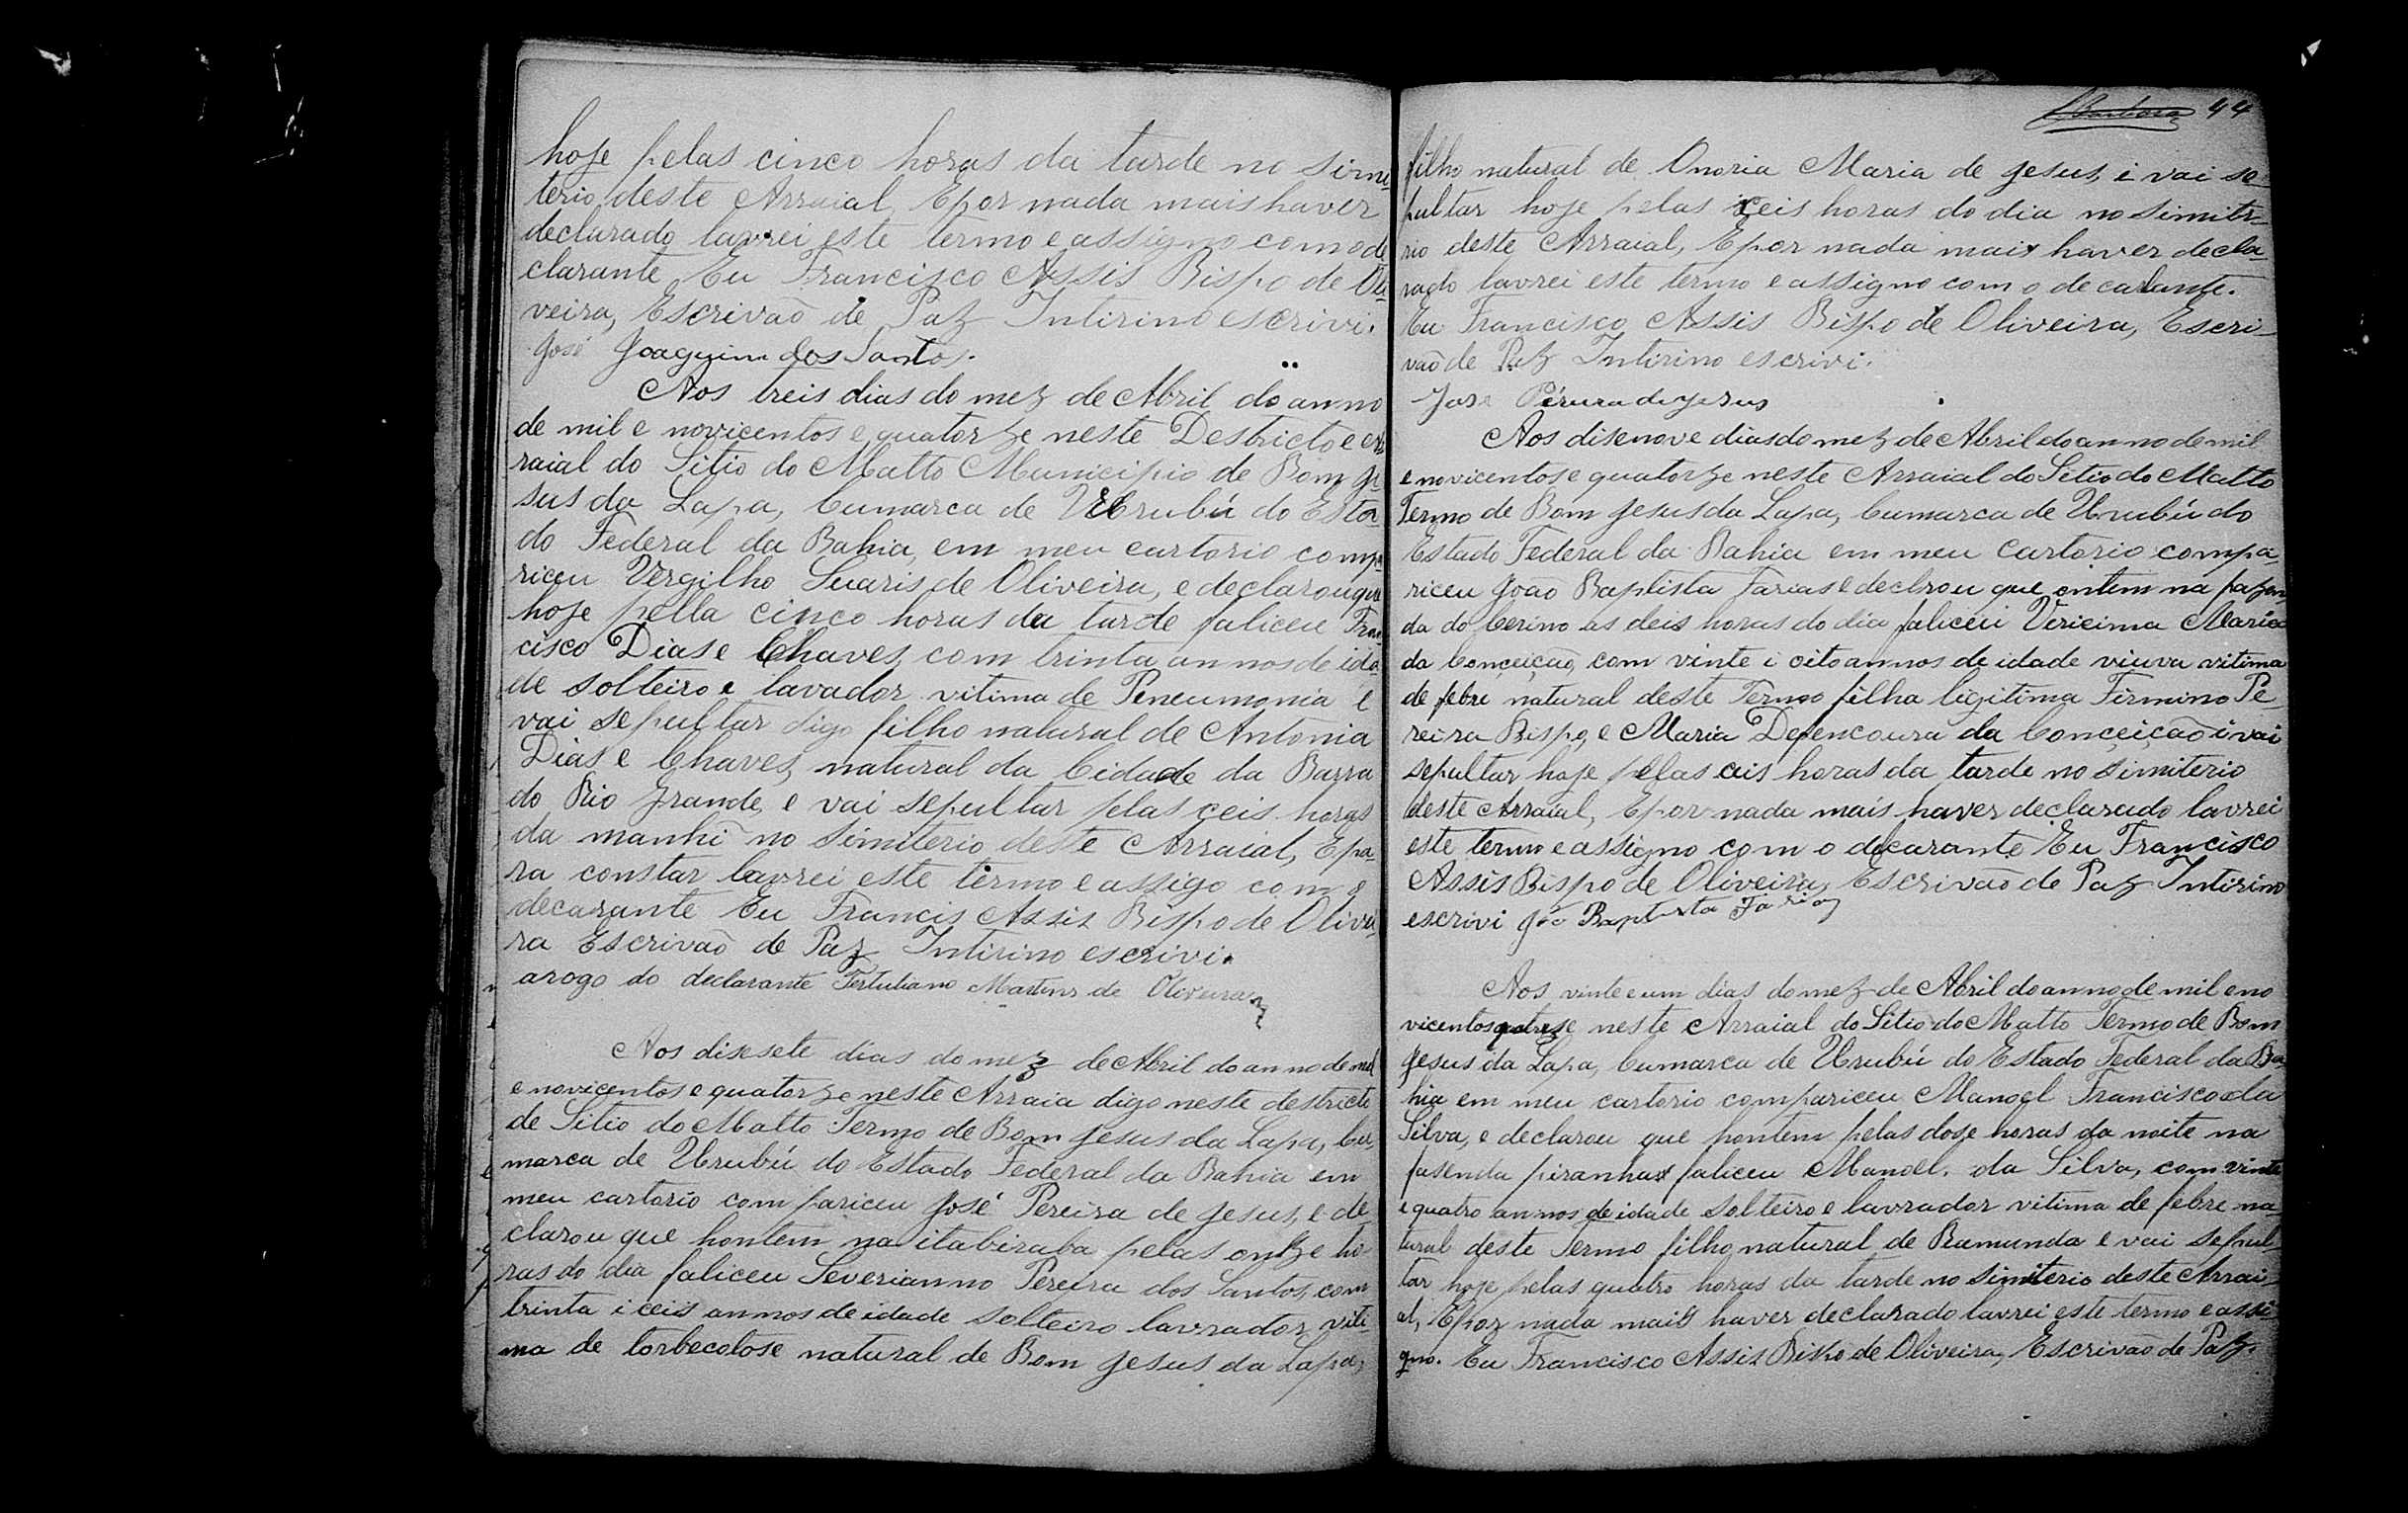 hoje pelas cinco horas da tarde no simi
terio deste Arraial, E por nada mais haver
declarado lavrei este termo e assigno com o de
clarante Eu Francisco Assis Bispo de Oli-
veira, Escrivão de Paz Intirino escrivi.
José Joaquim dos Santos.
Aos treis dias do mez de Abril do anno
de mil e novicentos e quatorze neste Destricto e Ar
raial do Sitio do Matto Municipio de Bom Je
sus da Lapa, Cumarca de Urubú do Esta
do Federal da Bahia, em meu cartorio compa
riceu Vergilho Suaris de Oliveira, e declarou que
hoje pella cinco horas da tarde faliceu Fran
cisco Dias e Chaves, com trinta annos de ida-
de solteiro e lavador vitima de Pneumonia e
vai sepultar digo filho natural de Antonia
Dias e Chaves, natural da Cidade da Barra
do Rio Grande, e vai sepultar pelas ceis horas
da manhi no simiterio deste Arraial, E pa-
ra constar lavrei este termo e assigo com o
decarante Eu Francis Assis Bispo de Olivei
ra Escrivão de Paz Intirino escrivi.
arogo do declarante Tertuliano Martins de Oliveira
Aos disesete dias do mez de Abril do anno de mil
e novicentos e quatorze neste Arraia digo neste destricto
de Sitio do Matto Termo de Bom Jesus da Lapa, Cu-
marca de Urubú do Estado Federal da Bahia em
meu cartorio compariceu José Pereira de Jesus, e de
clarou que hontem na itabiraba pelas onze ho-
ras do dia faliceu Severianno Pereira dos Santos, com
trinta i ceis annos de idade solteiro lavrador, viti-
ma de torbecolose natural de Bom Jesus da Lapa,
44
filho natural de Onoria Maria de Jesus, i vai se-
pultar hoje pelas ceis horas do dia no simite-
rio deste Arraial, E por nada mais haver decla-
rado lavrei este termo e assigno com o decalante.
Eu Francisco Assis Bispo de Oliveira, Escri-
vão de Paz Intirino escrivi.
José Péreira de Jesus
Aos disenove dias do mez de Abril do anno de mil
e novicentos e quatorze neste Arraial do Sitio do Matto
Termo de Bom Jesus da Lapa, Cumarca de Urubú do
Estado Federal da Bahia em meu cartorio compa
riceu João Baptista Farias e declrou que ontem na fazen
da do Cerino as deis horas do dia faliceu Maria
da Conceição, com vinte i oito annos de idade viuva vitima
de febre natural deste Termo filha ligitima Firmino Pe
reira Bispo, e Maria da Conceição i vai
sepultar hoje pelas ceis horas da tarde no simiterio
deste Arraial, E por nada mais haver declarado lavrei
este termo e assigno com o decarante Eu Francisco
Assis Bispo de Oliveira, Escrivão de Paz Intirino
escrivi João Baptista Farias
Aos vinte e um dias do mez de Abril do anno de mil e no
vicentos quatorze neste Arraial do Sitio do Matto Termo de Bom
Jesus da Lapa, Cumarca de Urubú do Estado Federal da Ba
hia em meu cartorio compariceu Manoel Francisco da
Silva, e declarou que hontem pelas dose horas da noite na
fasenda piranhas faliceu Manoel. da Silva, com vinte
e quatro annos de idade solteiro e lavrador vitima de febre na-
tural deste Termo filho natural de Ramunda e vai sepul-
tar hoje pelas quatro horas da tarde no simiterio deste Arrai-
al, E por nada mais haver declarado lavrei este termo e assi-
gno. Eu Francisco Assis Bispo de Oliveira, Escrivão de Paz.